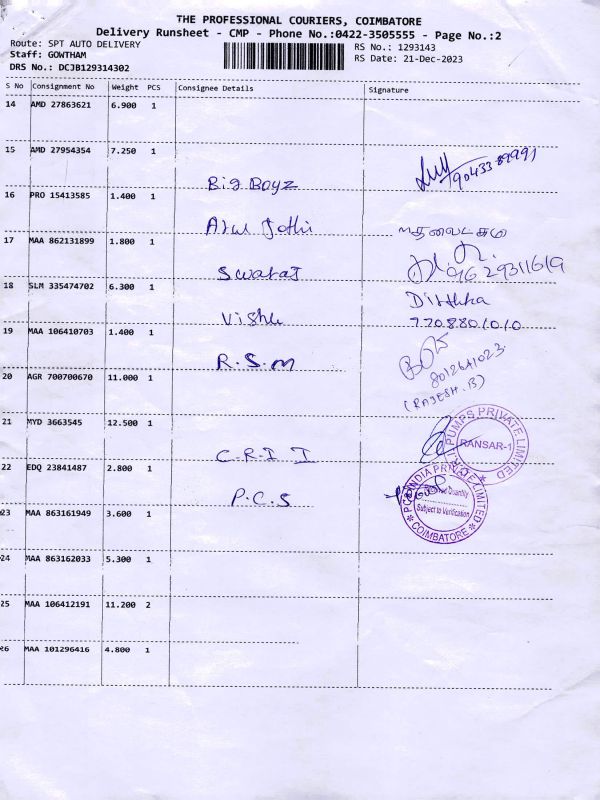 THE PROFESSIONAL COURIERS, COIMBATORE
Delivery Runsheet - CMP - Phone No.:0422-3505555 - Page No.:2
Route: SPT AUTO DELIVERY
Staff: GOWTHAM
DRS No.: DCJB129314302
RS No.: 1293143
RS Date: 21-Dec-2023
S No Consignment No Weight PCS Consignee Details Signature
14 AMD 27863621 6.900 1
15 AMD 27954354 7.250 1
Big Boyz 90433 89991
16 PRO 15413585 1.400 1
Arul Jothi
17 MAA 862131899 1.800 1
Swaraj 9629311619
18 SLM 335474702 6.300 1
Vishu 7708801010
19 MAA 106410703 1.400 1
R.S.M 8012641023
(RAJESH.B)
20 AGR 700700670 11.000 1
21 MYD 3663545 12.500 1
C.R.I I PUMPS PRIVATE LIMITED
RANSAR-1
22 EDQ 23841487 2.800 1
P.C.S INDIA PRIVATE LIMITED
Quantity
Subject to Verification
COIMBATORE
23 MAA 863161949 3.600 1
24 MAA 863162033 5.300 1
25 MAA 106412191 11.200 2
26 MAA 101296416 4.800 1